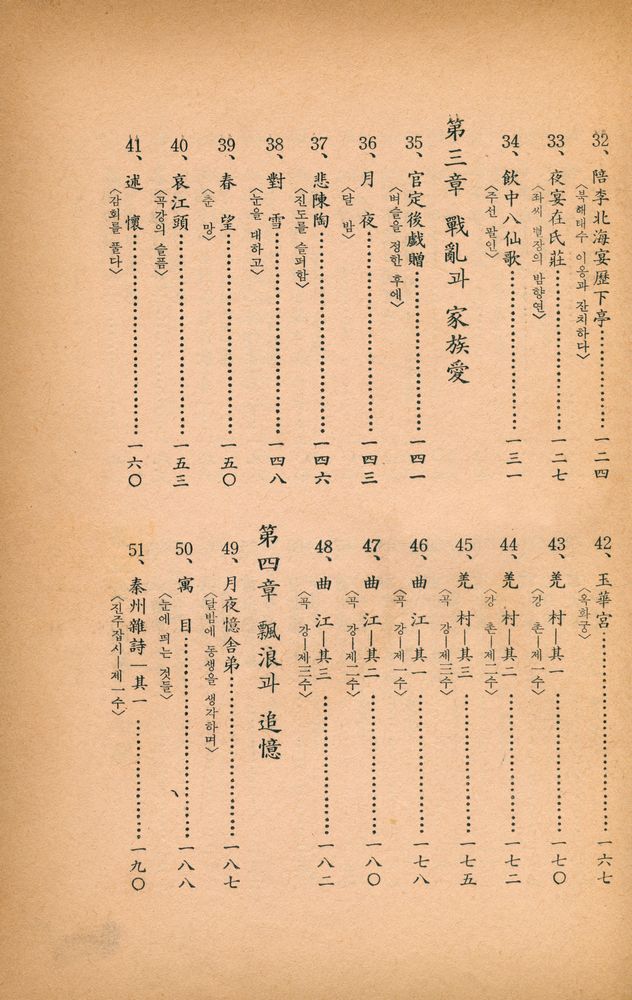 32、陪李北海宴歷下亭……………一二四
〈북해태수 이옹과 잔치하다〉
33、夜宴左氏莊……………一二七
〈좌씨 별장의 밤향연〉
34、飮中八仙歌……………一三一
〈주선 팔인〉
第三章 戰亂과 家族愛
35、官定後戱贈……………一四一
〈벼슬을 정한 후에〉
36、月夜……………一四三
〈달밤〉
37、悲陳陶……………一四六
〈진도를 슬퍼함〉
38、對雪……………一四八
〈눈을 대하고〉
39、春望……………一五〇
〈춘망〉
40、哀江頭……………一五三
〈곡강의 슬픔〉
41、述懷……………一六〇
〈감회를 풀다〉
42、玉華宮……………一六七
〈옥화궁〉
43、羌村—其一……………一七〇
〈강촌—제一수〉
44、羌村—其二……………一七二
〈강촌—제二수〉
45、羌村—其三……………一七五
〈곡강—제三수〉
46、曲江—其一……………一七八
〈곡강—제一수〉
47、曲江—其二……………一八〇
〈곡강—제二수〉
48、曲江—其三……………一八二
〈곡강—제三수〉
第四章 飄浪과 追憶
49、月夜憶舍弟……………一八七
〈달밤에 동생을 생각하며〉
50、寓目……………一八八
〈눈에 띄는 것들〉
51、秦州雜詩—其一……………一九〇
〈진주잡시—제一수〉